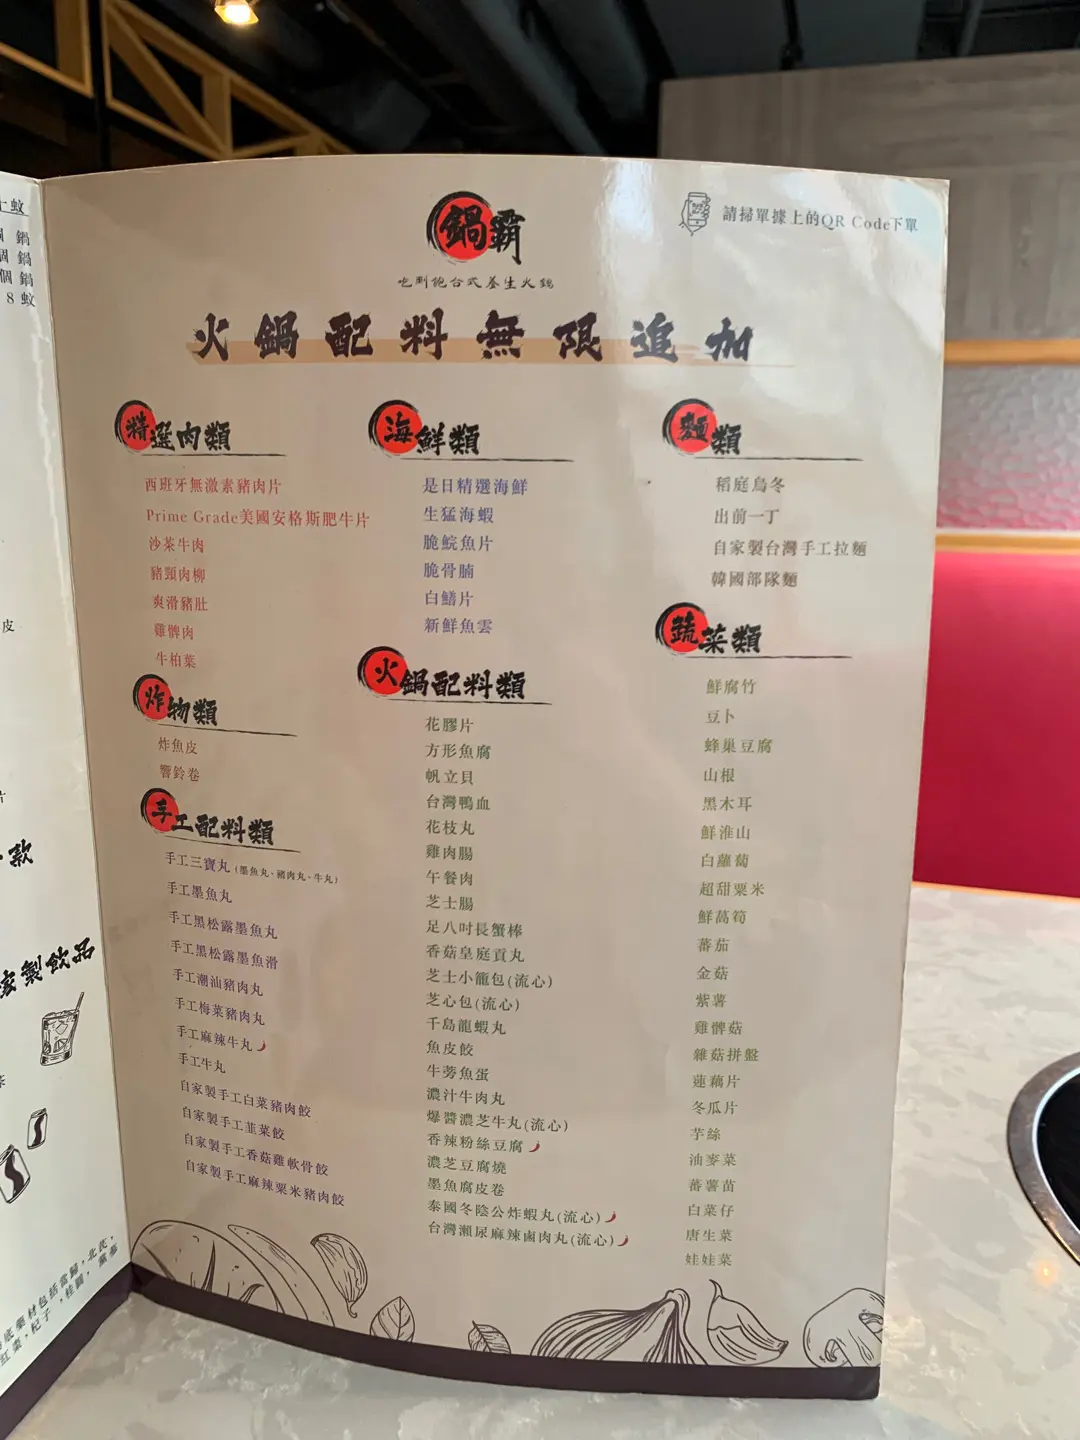 十蚊
個鍋
個鍋
個鍋
8蚊
皮
片
款
家製飲品
茶
鍋底藥材包括當歸，北芪，
紅棗，杞子，桂圓，黨參
鍋霸
吃剛飽台式養生火鍋
請掃單據上的QR Code下單
火鍋配料無限追加
精選肉類
西班牙無激素豬肉片
Prime Grade美國安格斯肥牛片
沙茶牛肉
豬頸肉柳
爽滑豬肚
雞髀肉
牛柏葉
炸物類
炸魚皮
響鈴卷
手工配料類
手工三寶丸(墨魚丸、豬肉丸、牛丸)
手工墨魚丸
手工黑松露墨魚丸
手工黑松露墨魚滑
手工潮汕豬肉丸
手工梅菜豬肉丸
手工麻辣牛丸
手工牛丸
自家製手工白菜豬肉餃
自家製手工韮菜餃
自家製手工香菇雞軟骨餃
自家製手工麻辣粟米豬肉餃
海鮮類
是日精選海鮮
生猛海蝦
脆鯇魚片
脆骨腩
白鱔片
新鮮魚雲
火鍋配料類
花膠片
方形魚腐
帆立貝
台灣鴨血
花枝丸
雞肉腸
午餐肉
芝士腸
足八吋長蟹棒
香菇皇庭貢丸
芝士小籠包(流心)
芝心包(流心)
千島龍蝦丸
魚皮餃
牛蒡魚蛋
濃汁牛肉丸
爆醬濃芝牛丸(流心)
香辣粉絲豆腐
濃芝豆腐燒
墨魚腐皮卷
泰國冬陰公炸蝦丸(流心)
台灣瀨尿麻辣鹵肉丸(流心)
麵類
稻庭烏冬
出前一丁
自家製台灣手工拉麵
韓國部隊麵
蔬菜類
鮮腐竹
豆卜
蜂巢豆腐
山根
黑木耳
鮮淮山
白蘿蔔
超甜粟米
鮮萵筍
蕃茄
金菇
紫薯
雞髀菇
雜菇拼盤
蓮藕片
冬瓜片
芋絲
油麥菜
蕃薯苗
白菜仔
唐生菜
娃娃菜